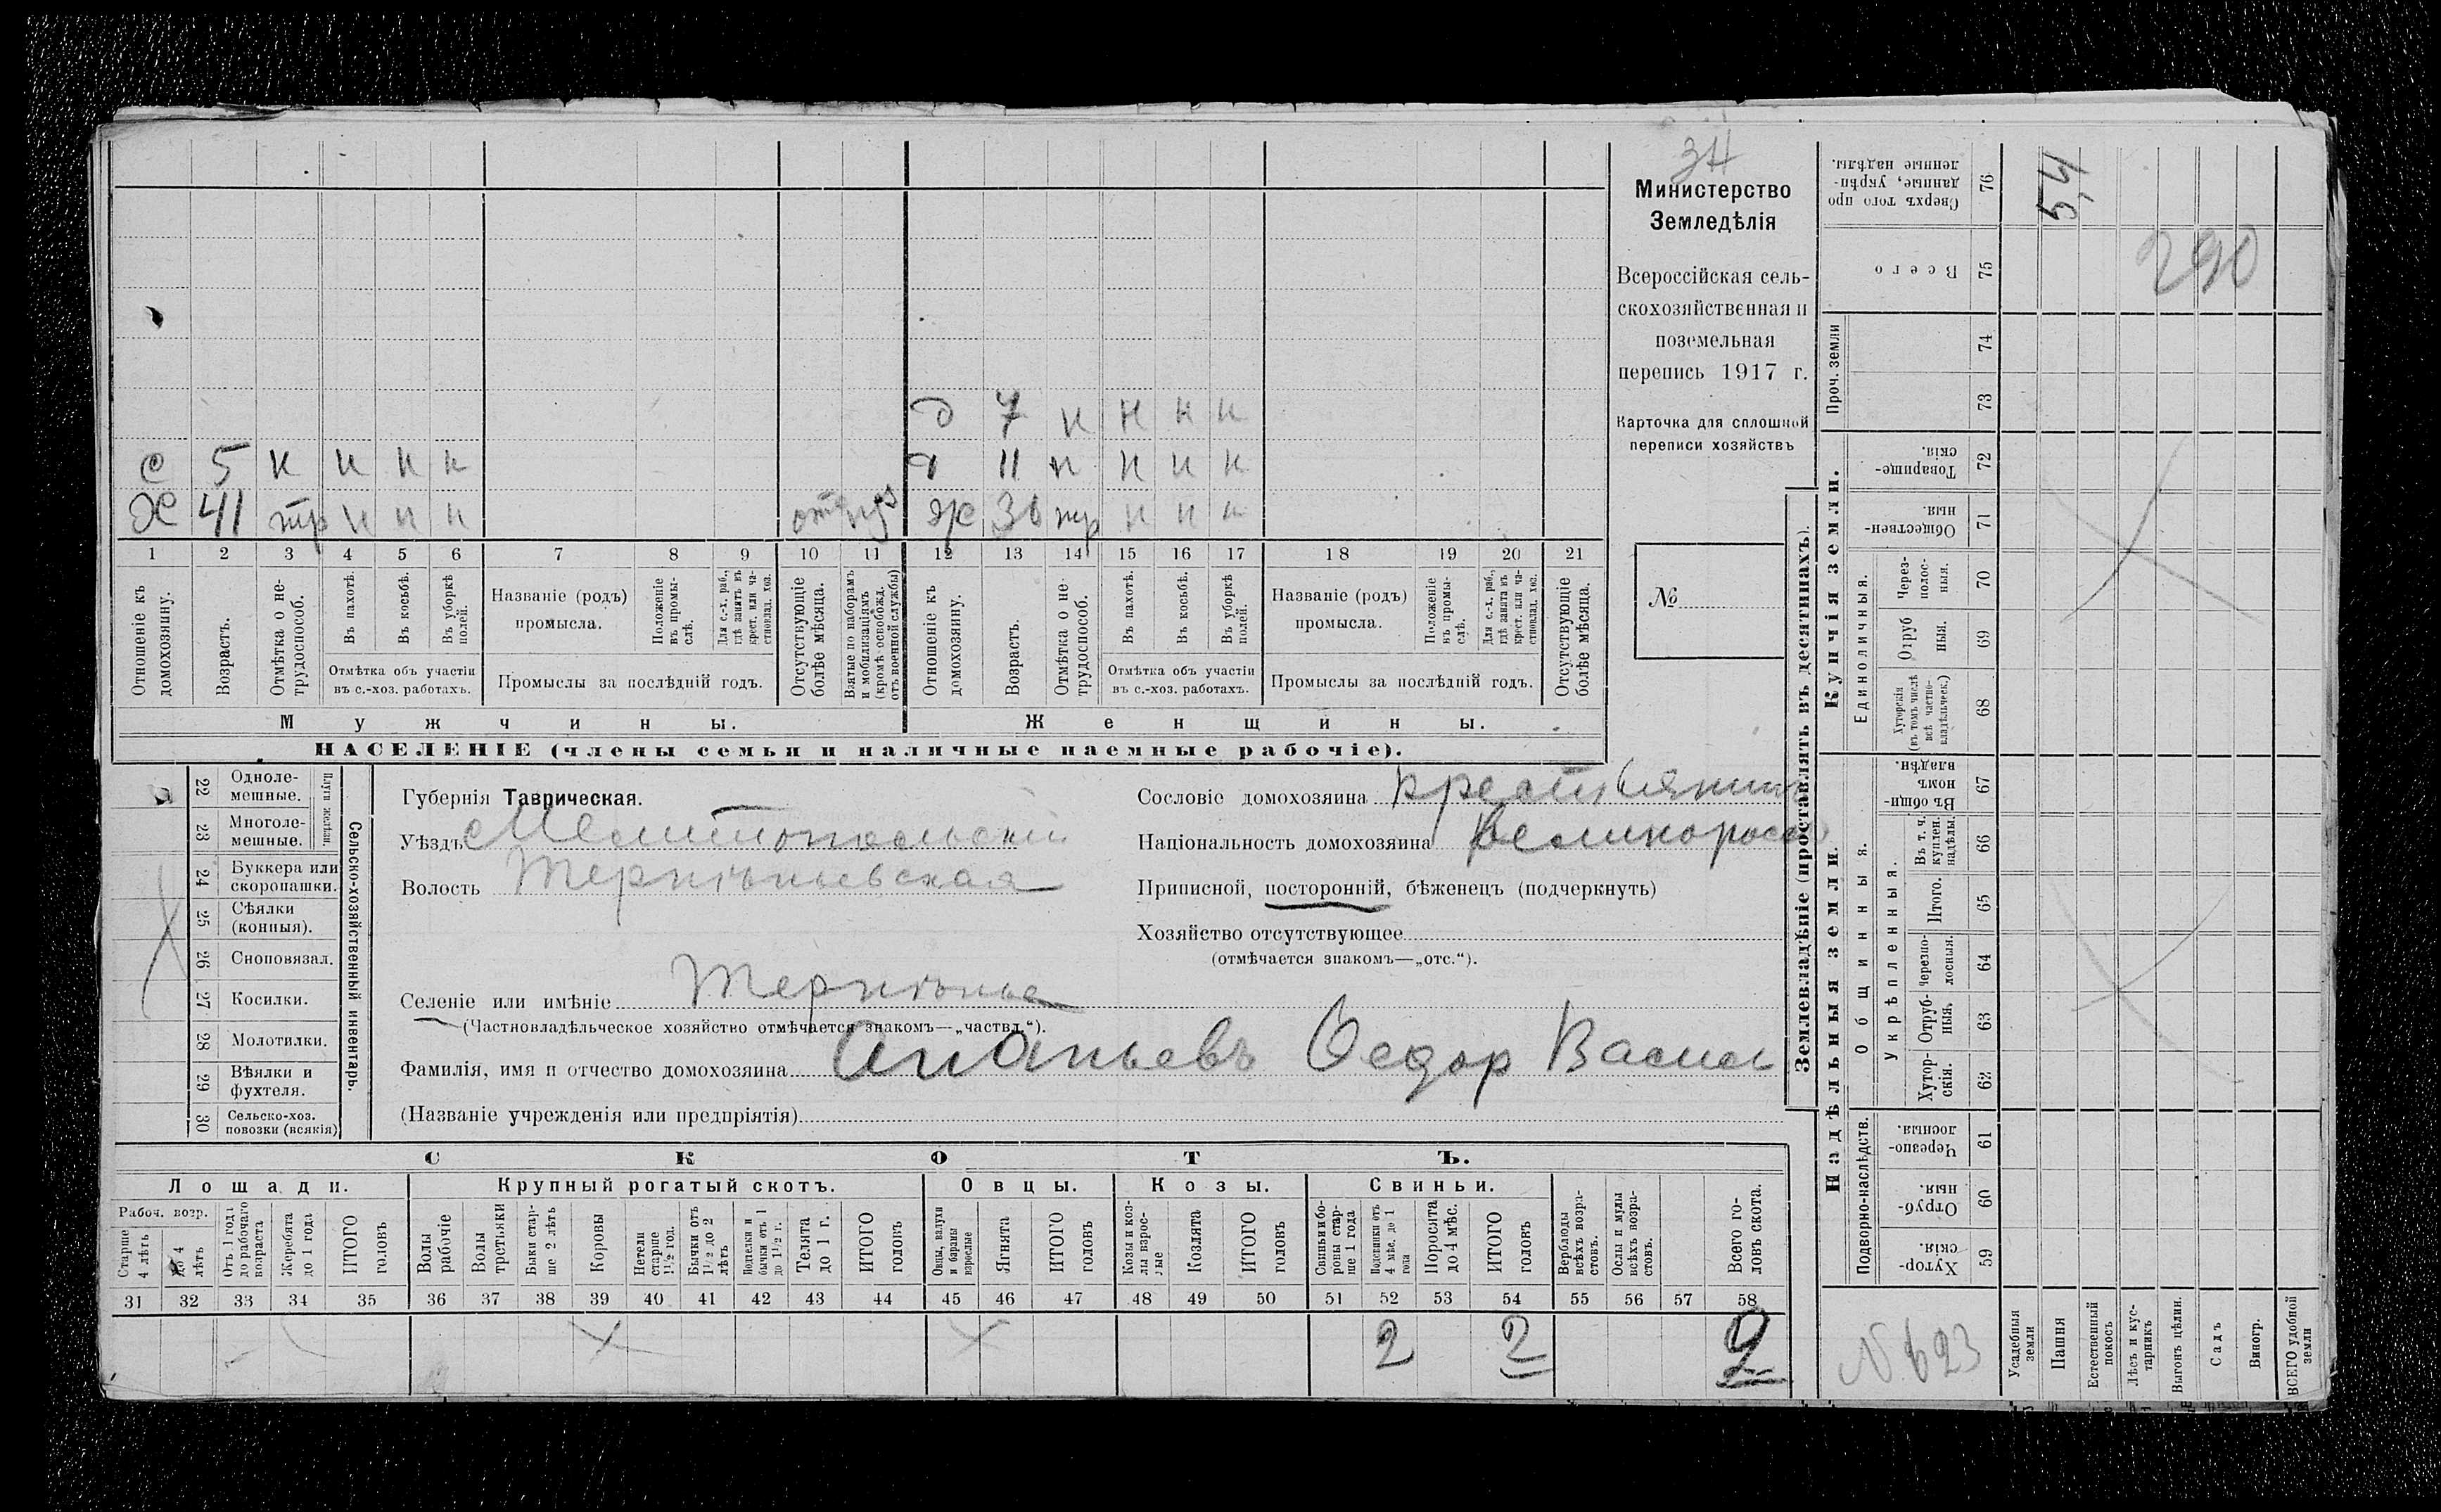 Министерство
Земледѣлія
Всероссійская сель-
скохозяйственная и
поземельная
перепись 1917 г.
Карточка для сплошной
переписи хозяйствъ
№
д 7 н н н н
с 5 н н н н
д 11 н н н н
х 41 тр н н н
ж 36 тр н н н
1 2 3 4 5 6 7 8 9 10 11 12 13 14 15 16 17 18 19 20 21
Отношеніе къ домохозяину.
Возрастъ.
Отмѣтка о не-трудоспособ.
Въ пахотѣ.
Въ косьбѣ.
Въ уборкѣ полей.
Отмѣтка объ участіи
въ с.-хоз. работахъ.
Названіе (родъ)
промысла.
Положеніе въ промы-слѣ.
Для с.-х. раб., гдѣ занятъ въ крест. или ча-стновлад. хоз.
Промыслы за послѣдній годъ.
Отсутствующіе болѣе мѣсяца.
Взятые по наборамъ и мобилизаціямъ (кромѣ освобожд. отъ военной службы)
Отношеніе къ домохозяину.
Возрастъ.
Отмѣтка о не-трудоспособ.
Въ пахотѣ.
Въ косьбѣ.
Въ уборкѣ полей.
Отмѣтка объ участіи
въ с.-хоз. работахъ.
Названіе (родъ)
промысла.
Положеніе въ промы-слѣ.
Для с.-х. раб., гдѣ занята въ крест. или ча-стновлад. хоз.
Промыслы за послѣдній годъ.
Отсутствующіе болѣе мѣсяца.
Мужчины.
Женщины.
НАСЕЛЕНІЕ (члены семьи и наличные наемные рабочіе).
22 Одноле-мешные.
23 Многоле-мешные.
Плуги желѣзн.
24 Буккера или скоропашки.
25 Сѣялки (конныя).
26 Сноповязал.
27 Косилки.
28 Молотилки.
29 Вѣялки и фухтеля.
30 Сельско-хоз. повозки (всякія)
Сельско-хозяйственный инвентарь.
Губернія Таврическая.
Уѣздъ Мелитопольскій
Волость Терпѣньевская
Сословіе домохозяина крестьянинъ
Національность домохозяина великороссъ
Приписной, посторонній, бѣженецъ (подчеркнуть)
Хозяйство отсутствующее
(отмѣчается знакомъ—„отс.“).
Селеніе или имѣніе Терпѣнье
(Частновладѣльческое хозяйство отмѣчается знакомъ—„частвл.“).
Фамилія, имя и отчество домохозяина Ананьевъ Федор Васил
(Названіе учрежденія или предпріятія)
СКОТЪ.
Лошади.
Крупный рогатый скотъ.
Овцы.
Козы.
Свиньи.
Рабоч. возр.
Старше 4 лѣтъ
До 4 лѣтъ
Отъ 1 года до рабочаго возраста
Жеребята до 1 года
ИТОГО головъ
Волы рабочіе
Волы третьяки
Быки стар-ше 2 лѣтъ
Коровы
Нетели старше 1½ год.
Бычки отъ 1½ до 2 лѣтъ
Подтелки и бычки отъ 1 до 1½ г.
Телята до 1 г.
ИТОГО головъ
Овцы, валухи и бараны взрослые
Ягнята
ИТОГО головъ
Козы и коз-лы взрос-лые
Козлята
ИТОГО головъ
Свиньи и бо-ровы стар-ше 1 года
Подсвинки отъ 4 мѣс. до 1 года
Поросята до 4 мѣс.
ИТОГО головъ
Верблюды всѣхъ возра-стовъ.
Ослы и мулы всѣхъ возра-стовъ.
Всего го-ловъ скота.
31 32 33 34 35 36 37 38 39 40 41 42 43 44 45 46 47 48 49 50 51 52 53 54 55 56 57 58
2 2 2
Землевладѣніе (проставлять въ десятинахъ).
Надѣльныя земли.
Купчія земли.
Проч. земли
Подворно-наслѣдств.
Общинныя.
Укрѣпленныя.
Единоличныя.
Сверхъ того про данные, укрѣп-ленные надѣлы. 76
Всего 75
74
73
Товарище-скія. 72
Обществен-ныя. 71
Через-полос-ныя. 70
Отруб ныя. 69
Хуторскія (въ томъ числѣ всѣ частно-владѣльческ.) 68
Въ общи-номъ владѣн. 67
Въ т. ч. куплен. надѣлы. 66
Итого. 65
Черезпо-лосныя. 64
Отруб-ныя. 63
Хутор-скія. 62
Черезпо-лосныя. 61
Отруб-ныя. 60
Хутор-скія. 59
5,4
290
N 623
Усадебныя земли
Пашня
Естественный покосъ
Лѣсъ и кус-тарникъ
Выгонъ цѣлин.
Садъ
Виногр.
ВСЕГО удобной земли